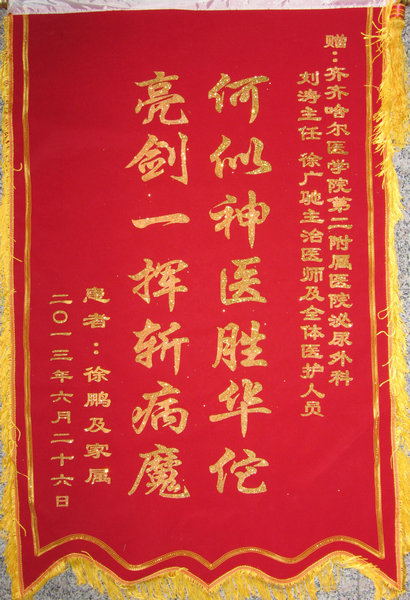 赠：齐齐哈尔医学院第二附属医院泌尿外科
刘涛主任 徐广驰主治医师及全体医护人员
何似神医胜华佗
亮剑一挥斩病魔
患者：徐鹏及家属
二〇一三年六月二十六日